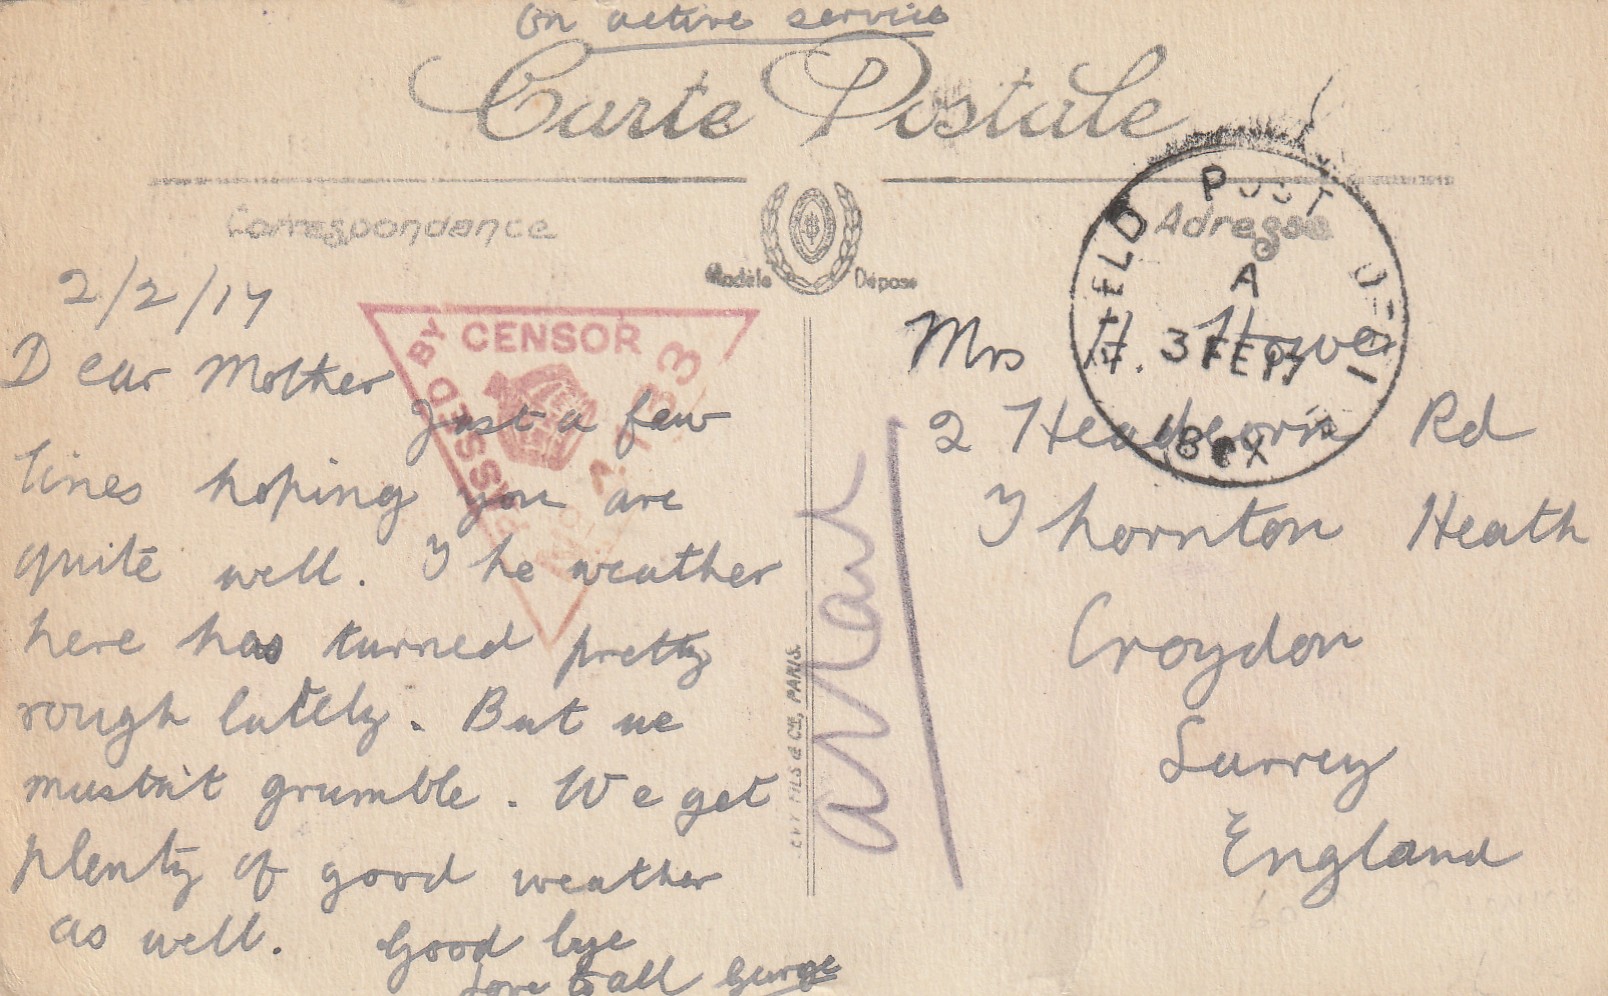 On active service
Carte Postale
Correspondance
Adresse
Modèle Déposé
2/2/17
Dear Mother
Just a few
lines hoping you are
quite well. The weather
here has turned pretty
rough lately. But we
mustn't grumble. We get
plenty of good weather
as well. Good bye
Love to all George
PASSED BY CENSOR
No 2133
LEVY FILS & CIE, PARIS.
FIELD POST OFFICE
A
3 FE 17
Mrs H. Howe
2 Headcorn Rd
Thornton Heath
Croydon
Surrey
England